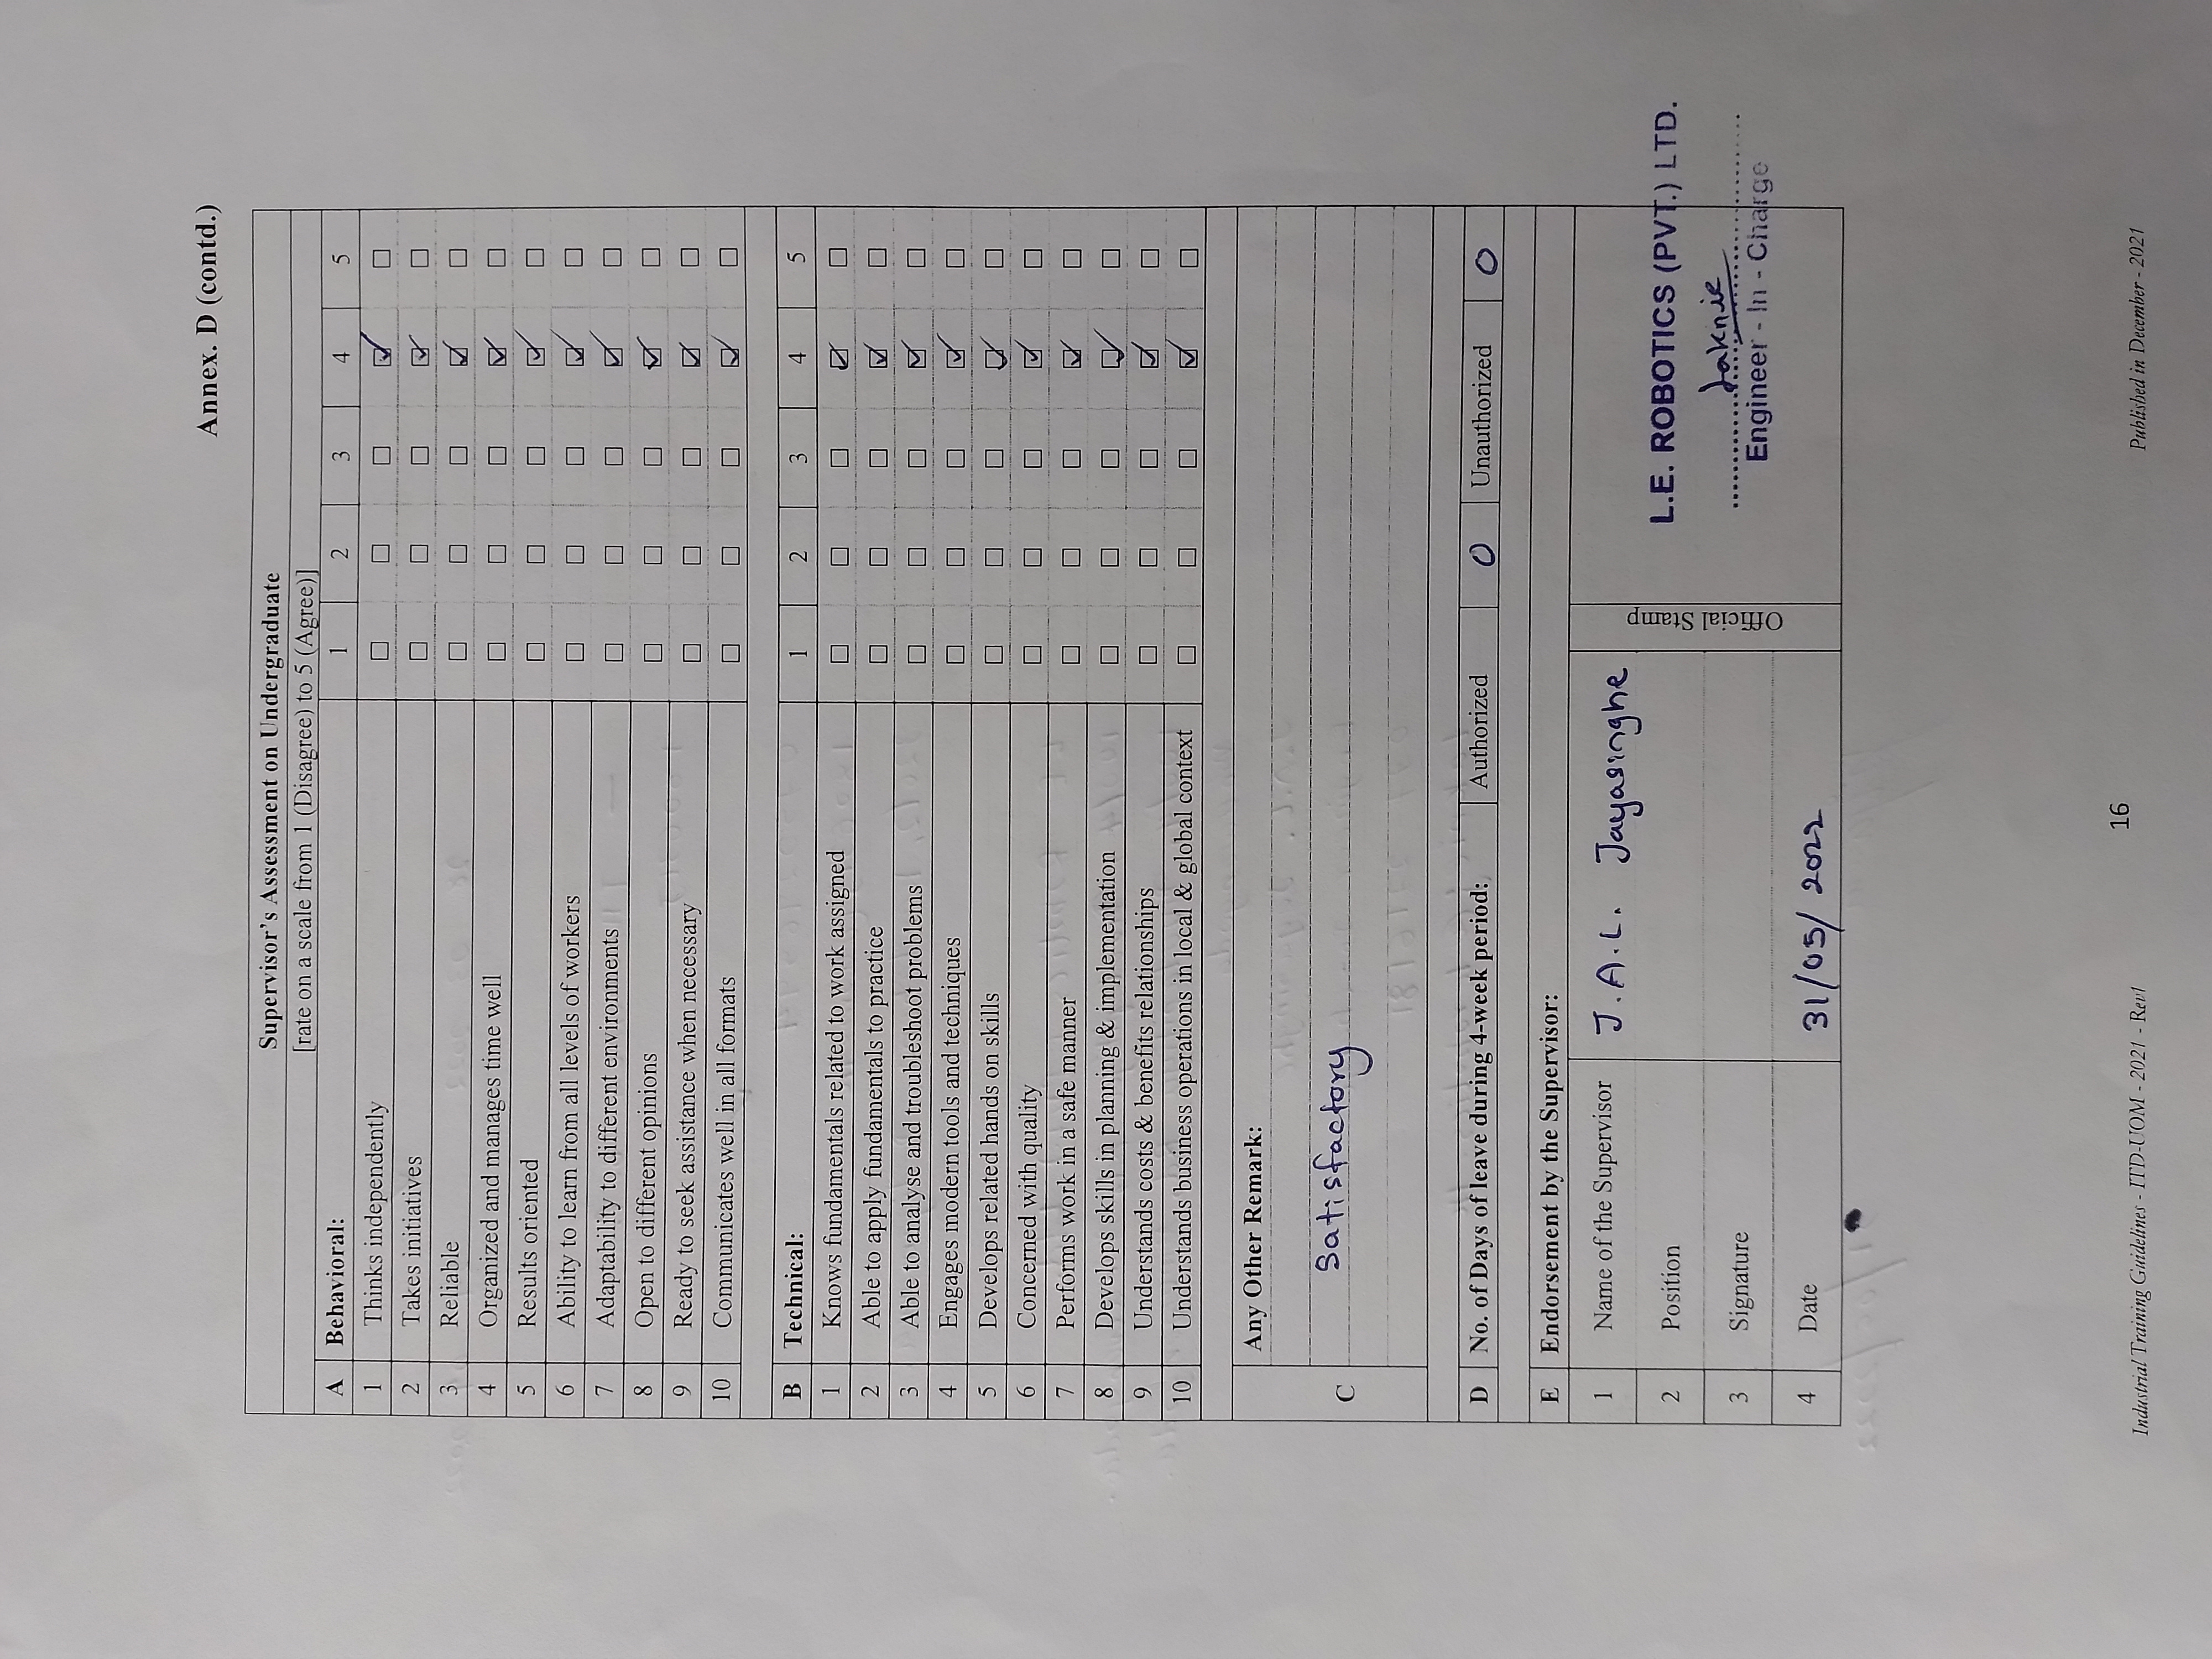 Annex. D (contd.)
Supervisor's Assessment on Undergraduate
[rate on a scale from 1 (Disagree) to 5 (Agree)]
A Behavioral: 1 2 3 4 5
1 Thinks independently ☐ ☐ ☐ ☑ ☐
2 Takes initiatives ☐ ☐ ☐ ☑ ☐
3 Reliable ☐ ☐ ☐ ☑ ☐
4 Organized and manages time well ☐ ☐ ☐ ☑ ☐
5 Results oriented ☐ ☐ ☐ ☑ ☐
6 Ability to learn from all levels of workers ☐ ☐ ☐ ☑ ☐
7 Adaptability to different environments ☐ ☐ ☐ ☑ ☐
8 Open to different opinions ☐ ☐ ☐ ☑ ☐
9 Ready to seek assistance when necessary ☐ ☐ ☐ ☑ ☐
10 Communicates well in all formats ☐ ☐ ☐ ☑ ☐
B Technical: 1 2 3 4 5
1 Knows fundamentals related to work assigned ☐ ☐ ☐ ☑ ☐
2 Able to apply fundamentals to practice ☐ ☐ ☐ ☑ ☐
3 Able to analyse and troubleshoot problems ☐ ☐ ☐ ☑ ☐
4 Engages modern tools and techniques ☐ ☐ ☐ ☑ ☐
5 Develops related hands on skills ☐ ☐ ☐ ☑ ☐
6 Concerned with quality ☐ ☐ ☐ ☑ ☐
7 Performs work in a safe manner ☐ ☐ ☐ ☑ ☐
8 Develops skills in planning & implementation ☐ ☐ ☐ ☑ ☐
9 Understands costs & benefits relationships ☐ ☐ ☐ ☑ ☐
10 Understands business operations in local & global context ☐ ☐ ☐ ☑ ☐
C Any Other Remark:
Satisfactory
D No. of Days of leave during 4-week period: Authorized 0 Unauthorized 0
E Endorsement by the Supervisor:
1 Name of the Supervisor J.A.L. Jayasinghe
2 Position
3 Signature
4 Date 31/05/2022
Official Stamp
L.E. ROBOTICS (PVT.) LTD.
Engineer - In - Charge
16
Industrial Training Guidelines - ITD-UOM - 2021 - Rev1
Published in December - 2021